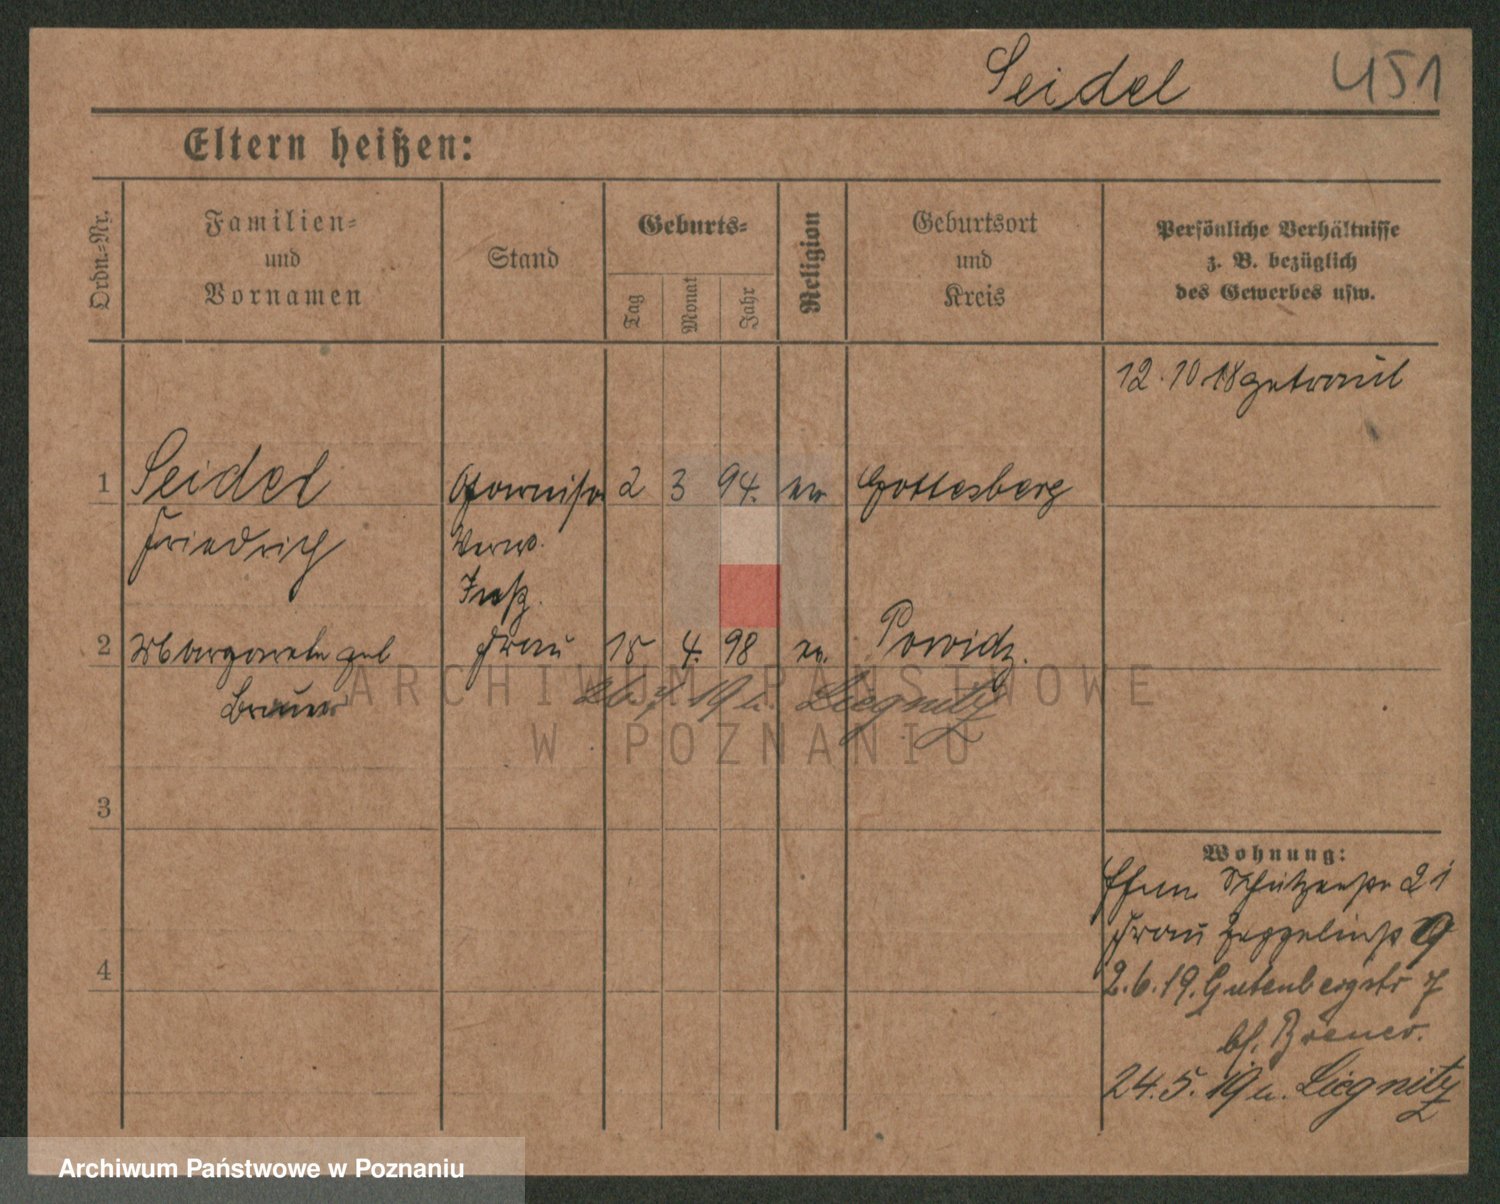 Seidel 451
Eltern heißen:
Ordn.=Nr.
Familien=
und
Vornamen
Stand
Geburts=
Tag
Monat
Jahr
Religion
Geburtsort
und
Kreis
Persönliche Verhältnisse
z. B. bezüglich
des Gewerbes usw.
12. 10 18 getraut
1 Seidel Garniso 2 3 94. ev Gottesberg
Friedrich Verw.
Insp.
2 Margarete geb Frau 15 4. 98 ev. Powidz.
Brauer 26.7.19 n. Liegnitz
ARCHIWUM PAŃSTWOWE
W POZNANIU
3
Wohnung:
Ehem. Schützenstr 21
Frau Zeppelinstr 9
4
2.6.19. Gutenbergstr 7
bei
24.5.19 n. Liegnitz
Archiwum Państwowe w Poznaniu